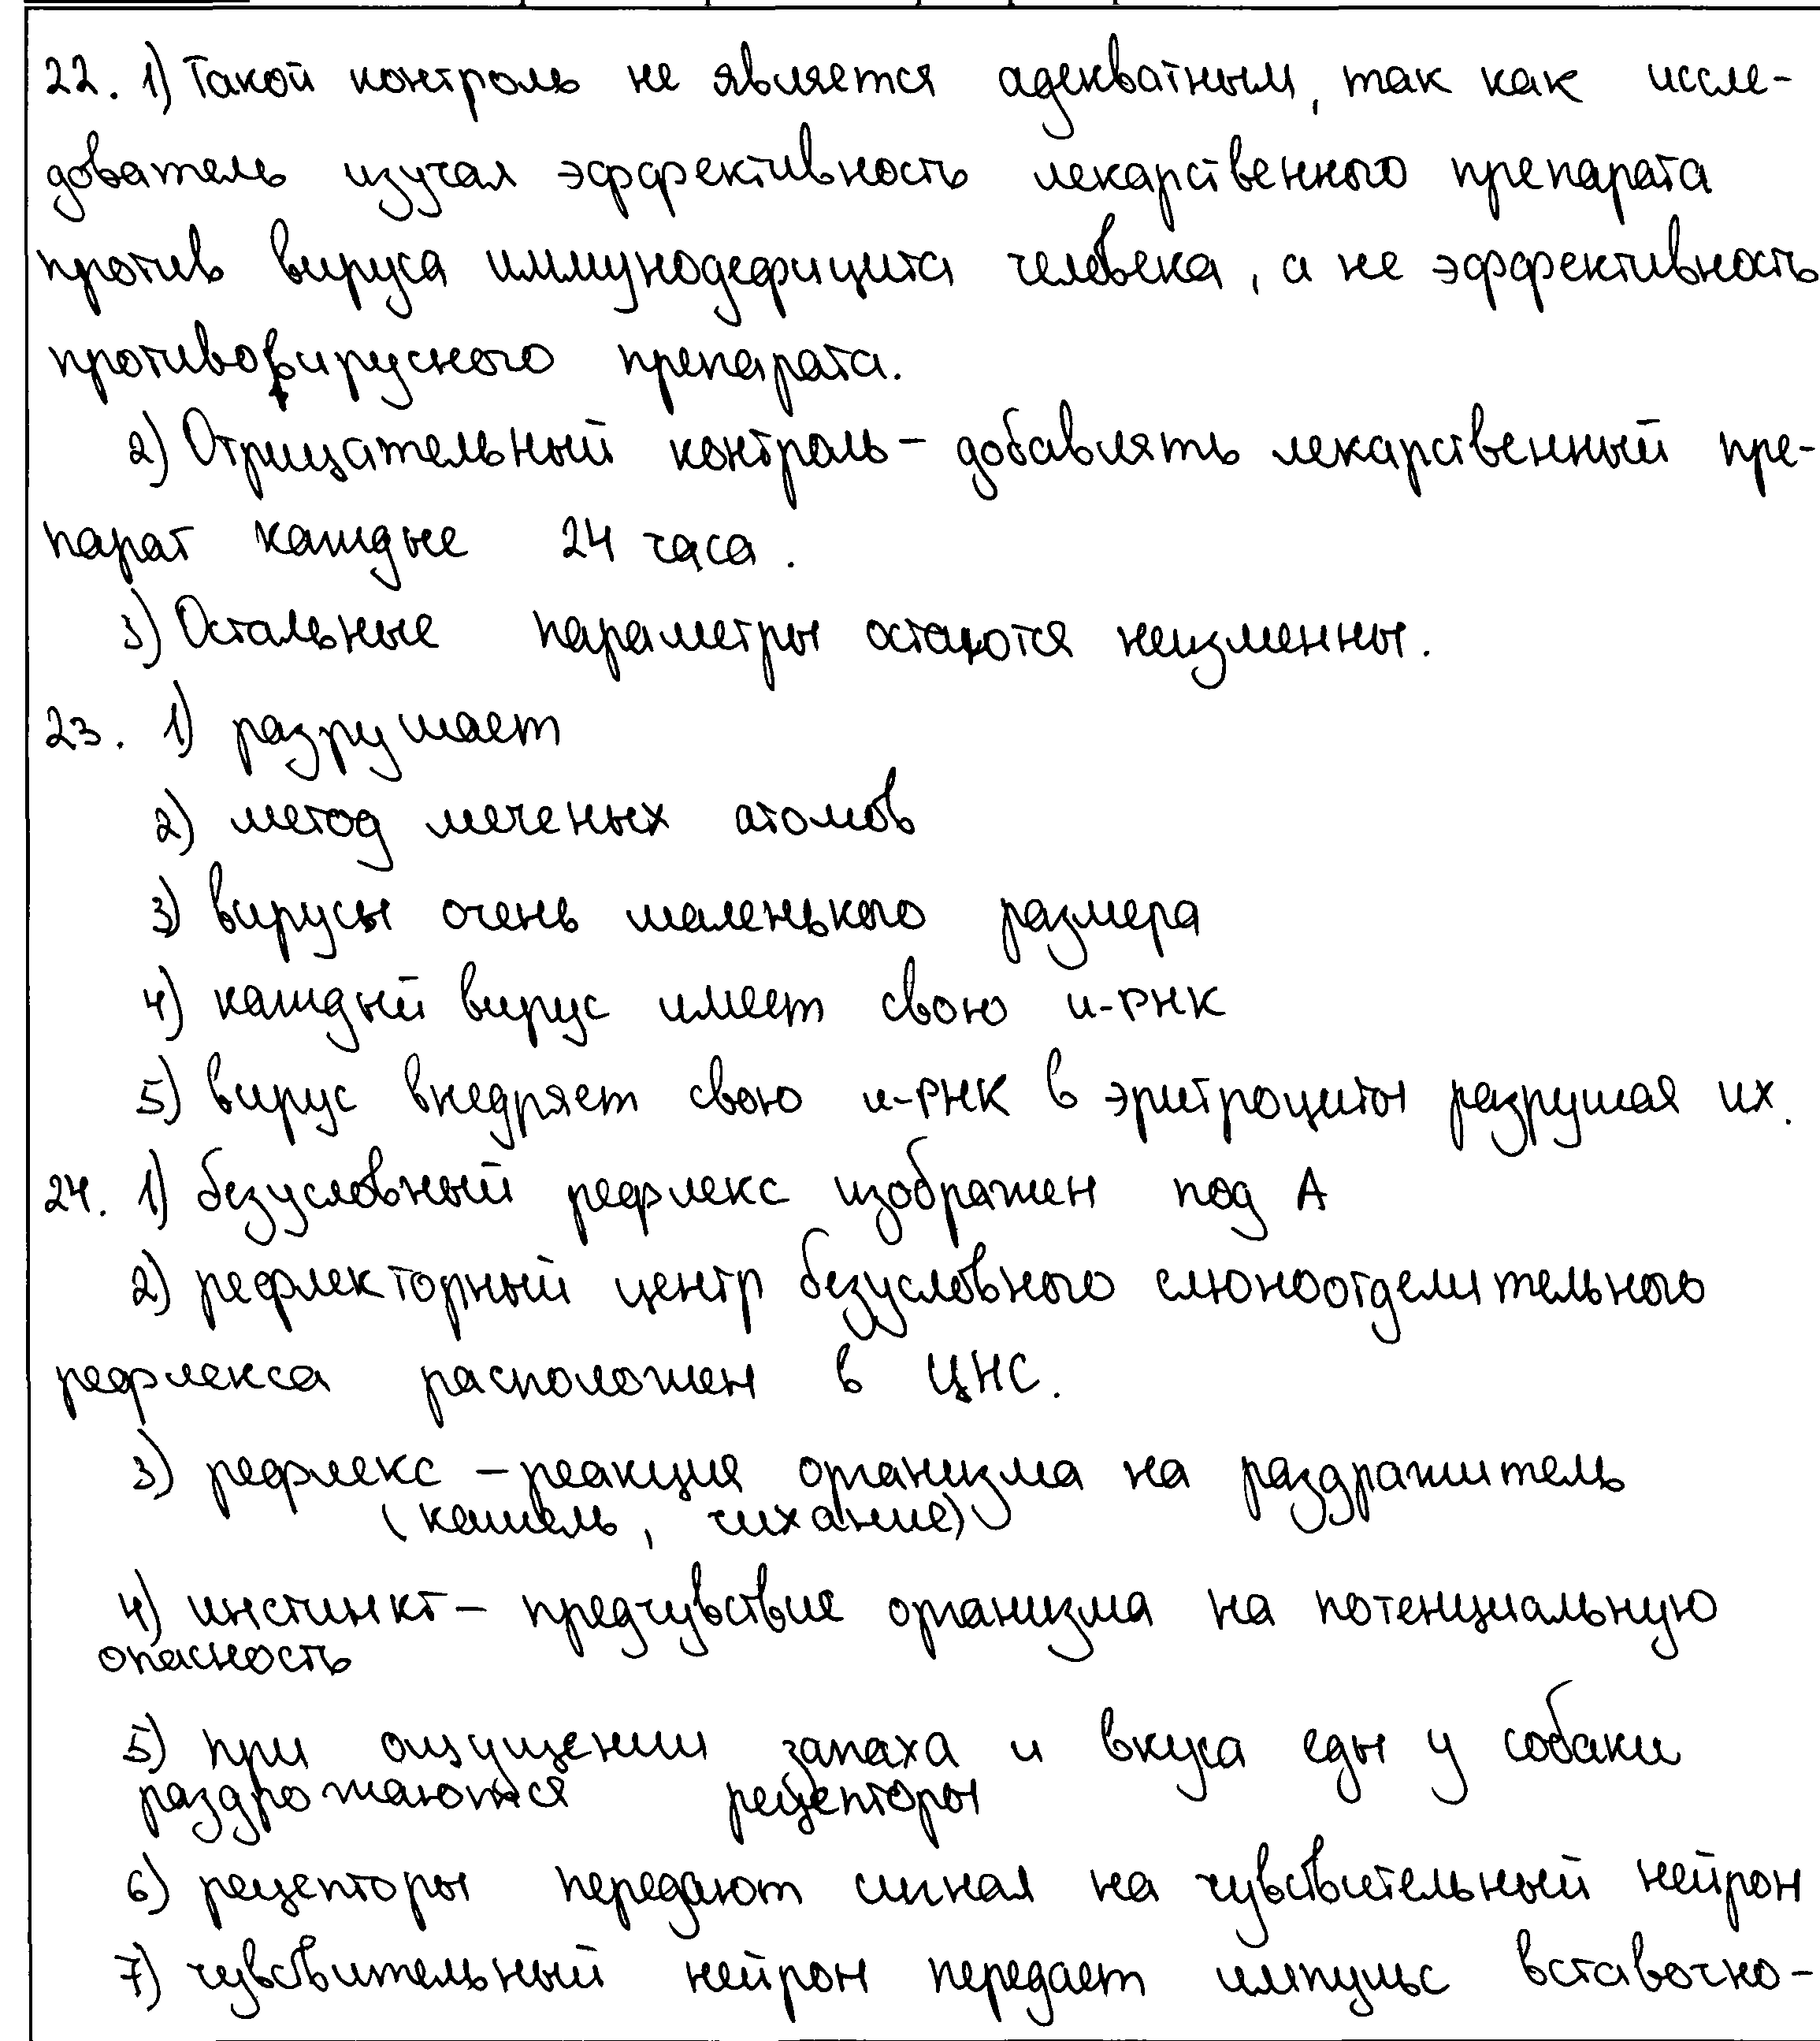 22. 1) Такой контроль не является адекватным, так как иссле-
дователь изучал эффективность лекарственного препарата
против вируса иммунодефицита человека, а не эффективность
противовирусного препарата.
2) Отрицательный контроль – добавлять лекарственный пре-
парат каждые 24 часа.
3) Остальные параметры остаются неизменны.
23. 1) разрушает
2) метод меченых атомов
3) вирусы очень маленького размера
4) каждый вирус имеет свою и-РНК
5) вирус внедряет свою и-РНК в эритроциты разрушая их.
24. 1) безусловный рефлекс изображен под А
2) рефлекторный центр безусловного слюноотделительного
рефлекса расположен в ЦНС.
3) рефлекс – реакция организма на раздражитель
(кашель, чихание)
4) инстинкт – предчувствие организма на потенциальную
опасность
5) при ощущении запаха и вкуса еды у собаки
раздрожаются рецепторы
6) рецепторы передают сигнал на чувствительный нейрон
7) чувствительный нейрон передает импульс вставочно-